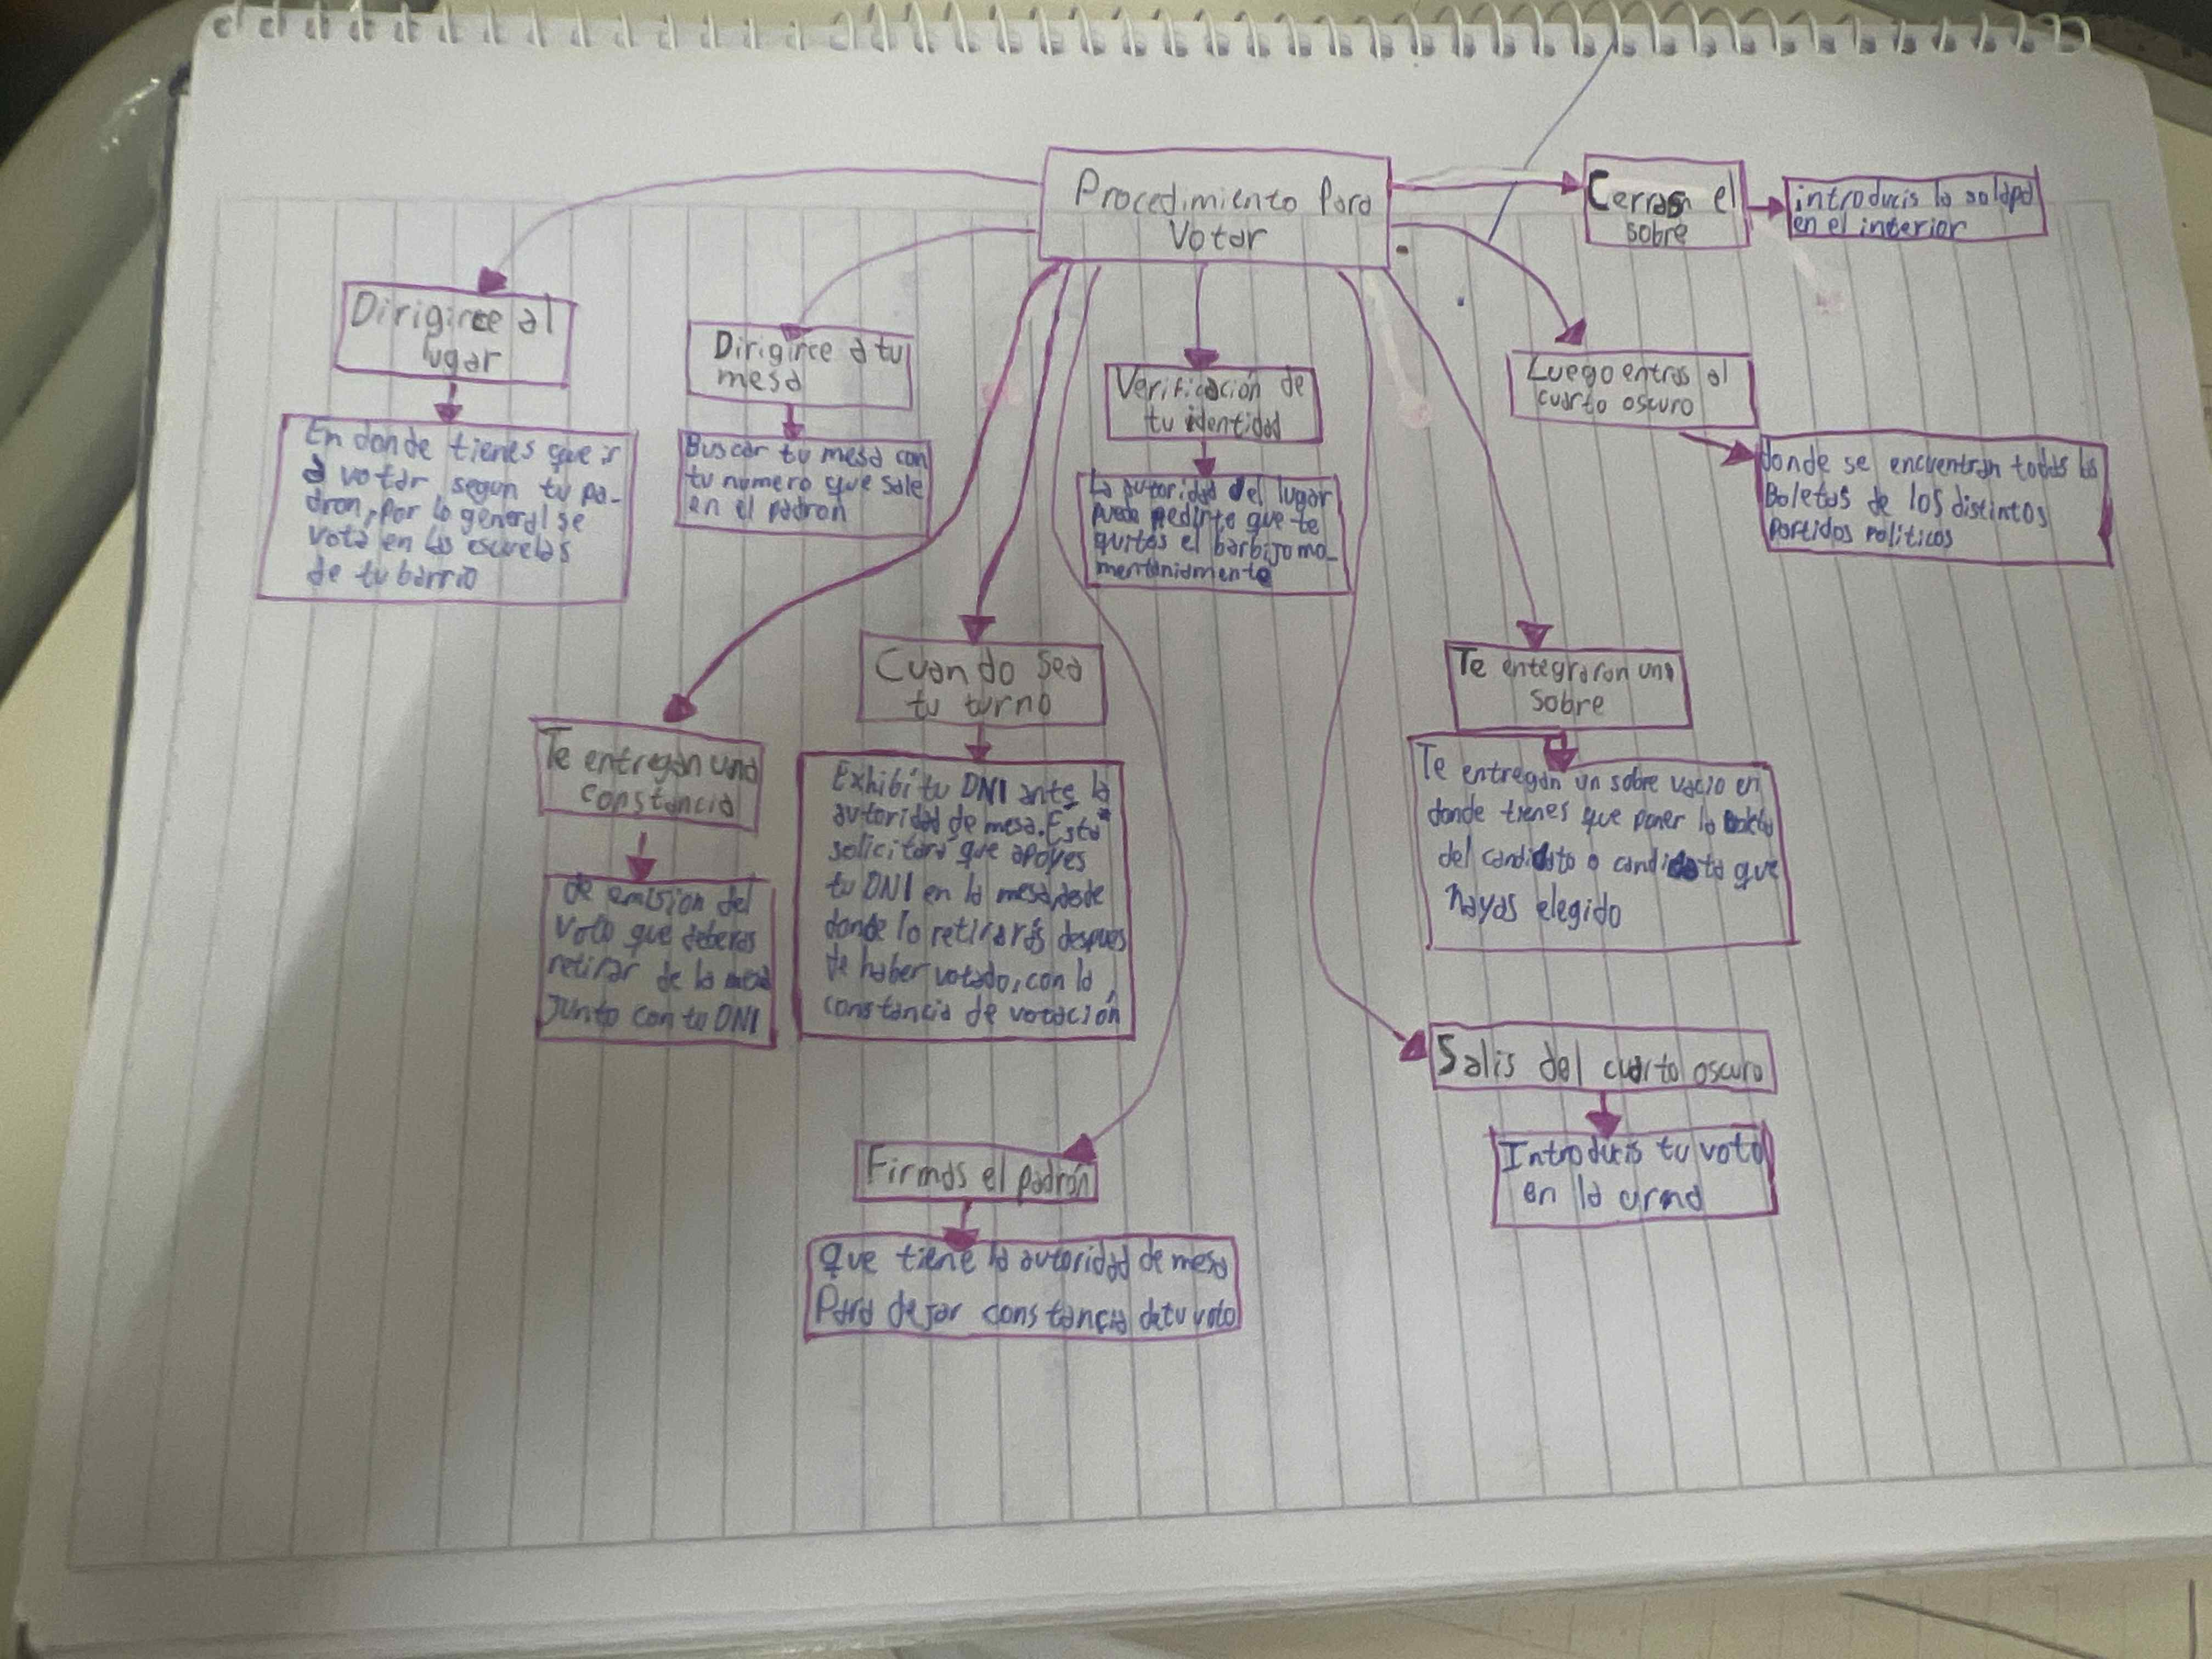 Procedimiento Para
Votar
Cerras el
sobre
introducis la solapa
en el interior
Dirigirce al
lugar
En donde tienes que ir
a votar segun tu pa-
dron, por lo general se
vota en las escuelas
de tu barrio
Dirigirce a tu
mesa
Buscar tu mesa con
tu numero que sale
en el padron
Verificación de
tu identidad
La autoridad del lugar
puede pedirte que te
quites el barbijo mo-
mentaniamente
Luego entras al
cuarto oscuro
donde se encuentran todas las
Boletas de los distintos
Partidos politicos
Te entregan una
constancia
de emision del
voto que deberas
retirar de la mesa
Junto con tu DNI
Cuando sea
tu turno
Exhibí tu DNI ante la
autoridad de mesa. Esta
solicitará que apoyes
tu DNI en la mesa, desde
donde lo retirarás despues
de haber votado, con la
constancia de votación
Te entegraran una
sobre
Te entregan un sobre vacio en
donde tienes que poner la boleta
del candidato o candidata que
hayas elegido
Firmas el padrón
Que tiene la autoridad de mesa
Para dejar constancia de tu voto
Salis del cuarto oscuro
Introducis tu voto
en la urna